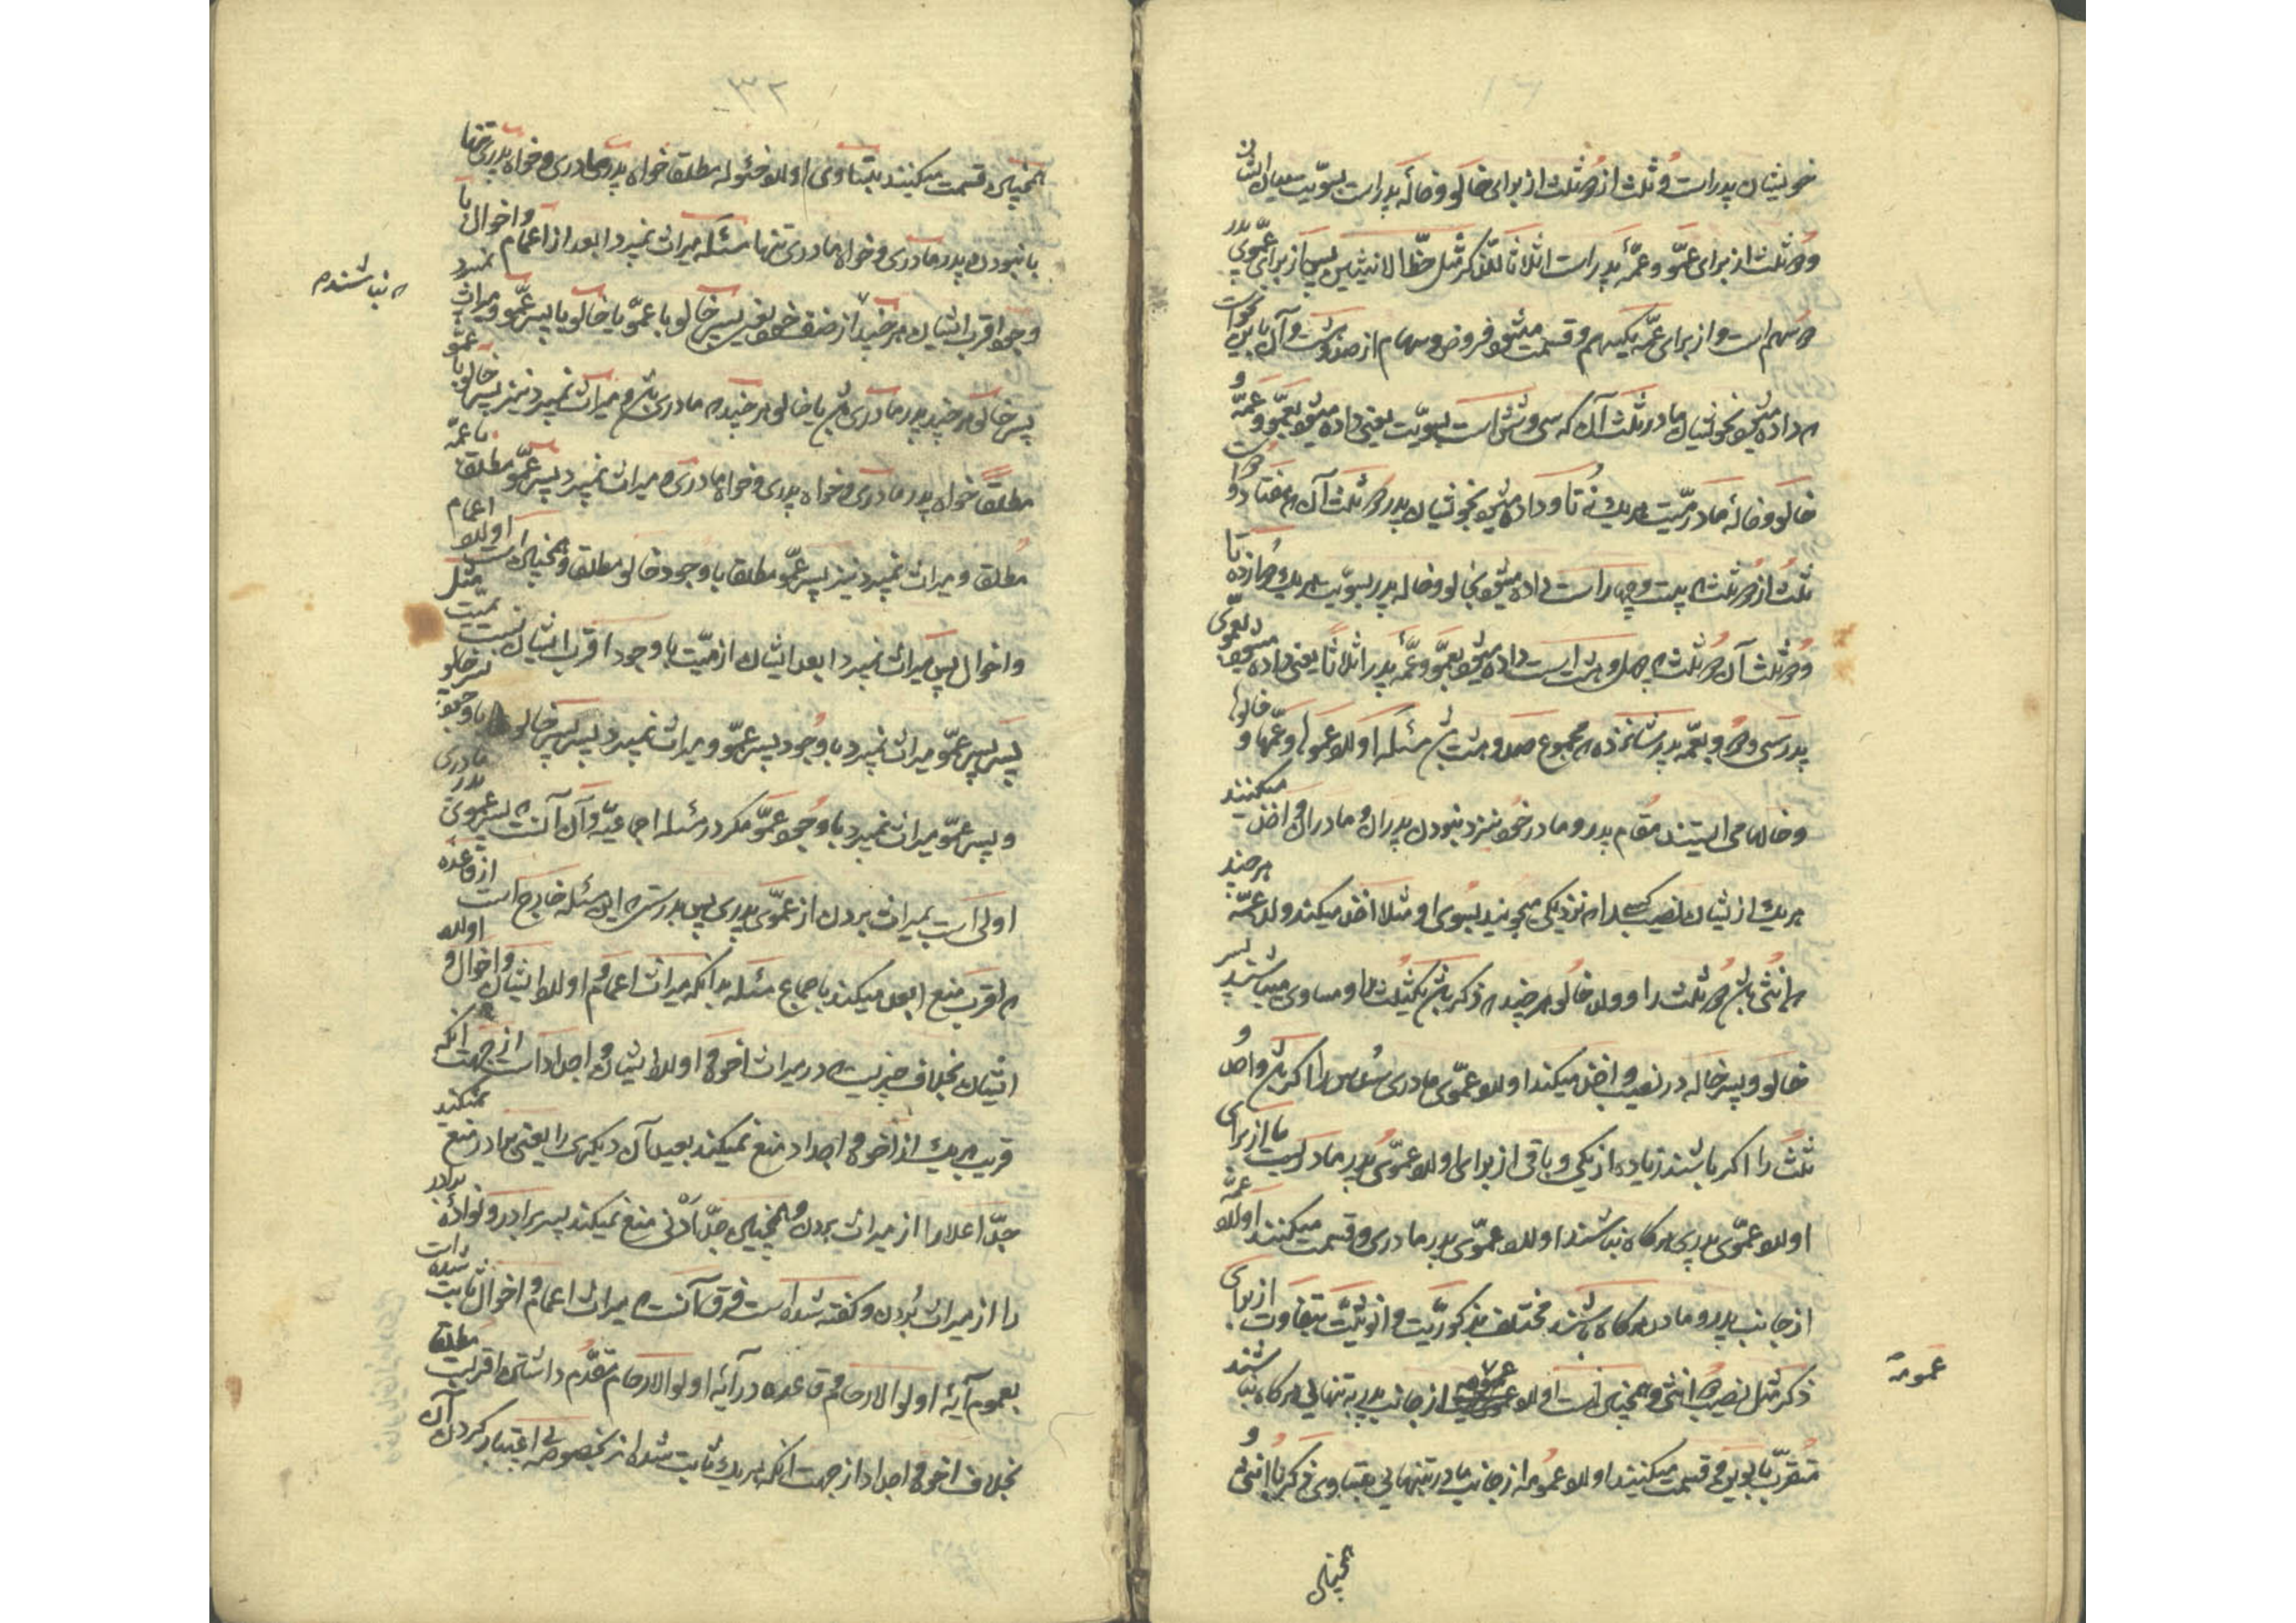 خویشان پدر است و ثلث از دو ثلث از برای خالو و خاله پدر است بسویت میان ایشان
و دو ثلث از برای عمو و عمه پدر است اثلاثا للذکر مثل حظ الانثیین پس از برای عموی پدر
دو سهم است و از برای عمه یکسهم و قسمت میشود فروض و سهام از صد و هشت و آن باین نحو است
که داده میشود بخویشان مادر ثلث آن که سی و شش است بسویت یعنی داده میشود بعمو و عمه و
خالو و خاله مادر میت هر یک نه تا و داده میشود بخویشان پدر دو ثلث آن که هفتاد و دو است
ثلث از دو ثلث که بیست و چهار است داده میشود بخالو و خاله پدر بسویت هر یک دوازده تا
و دو ثلث آن دو ثلث که چهل و هشت است داده میشود بعمو و عمه پدر اثلاثا یعنی داده میشود بعموی
پدر سی و دو و بعمه پدر شانزده که مجموع صد و هشت باشد مسئله اولاد عموها و عمها و خالوها
و خالها می ایستند مقام پدر و مادر خود نزد نبودن پدران و مادران و اخذ میکنند
هر یک از ایشان نصیب کسی را که نزدیکی میجویند بسوی او مثلا اخذ میکند ولد عمه هر چند
که انثی باشد دو ثلث را و ولد خالو هر چند که ذکر باشد یکثلث را و مساوی میباشند پسر
خالو و پسر خاله در نصیب و اخذ میکند اولاد عموی مادری سدس را اگر باشد واحد و
ثلث را اگر باشند زیاده از یکی و باقی از برای اولاد عموی پدر مادریست یا از برای
اولاد عموی پدری هر گاه نباشند اولاد عموی پدر مادری و قسمت میکنند اولاد عمه
از جانب پدر و مادر هر گاه باشند مختلف بذکوریت و انوثیت بتفاوت از برای
ذکر مثل نصیب دو انثی و همچنان است اولاد عمومة از جانب پدر به تنهائی هر گاه نباشند
متقرب بابوین و قسمت میکنند اولاد عمومه از جانب مادر بتنهائی بتساوی ذکر با انثی و
همچنان
عمومة
۳۲
همچنان قسمت میکنند بتساوی اولاد خئوله مطلق خواه پدر و مادری و خواه پدری تنها
با نبودن پدر مادری و خواه مادری تنها مسئله میراث نمیبرد ابعد از اعمام و اخوال با
وجود اقرب ایشان هر چند از صنف خود یعنی پسر خالو با عمو یا خالو یا پسر عمو و میراث نمیبرد
پسر خالو هر چند پدر مادری باشد یا خالو هر چند که مادری باشد و میراث نمیبرد نیز پسر خالو با عمو
مطلقا خواه پدر مادری و خواه پدری و خواه مادری و میراث نمیبرد پسر عمو مطلق با عمه
مطلق و میراث نمیبرد نیز پسر عمو مطلق با وجود خالو مطلق و همچنان است اولاد اعمام
و اخوال پس میراث نمیبرد ابعد ایشان از میت با وجود اقرب ایشان نسبت بمیت مثل
پسر پسر عمو میراث نمیبرد با وجود پسر عمو و میراث نمیبرد پسر پسر خالو با وجود پسر خالو
و پسر عمو میراث نمیبرد با وجود عمو مگر در مسئله اجماعیه و آن آنست که پسر عموی پدر مادری
اولی است بمیراث بردن از عموی پدری پس بدرستی که این مسئله خارج است از قاعده
که اقرب منع ابعد میکند باجماع مسئله بدانکه میراث اعمام و اولاد ایشان و اخوال و اولاد
ایشان بخلاف چیزیست که در میراث اخوه و اولاد ایشان و اجداد است از جهت آنکه
قریب هر یک از اخوه و اجداد منع نمیکند بعید آن دیگری را یعنی برادر منع نمیکند
جد اعلا را از میراث بردن و همچنان جد ادنی منع نمیکند پسر برادر و نواده برادر
را از میراث بردن و گفته شده است فرق آنست که میراث اعمام و اخوال ثابت شده است
بعموم آیه اولوا الارحام و قاعده در آیه اولوا الارحام تقدم داشتن اقربست مطلقا
بخلاف اخوه و اجداد از جهت آنکه هر یک ثابت شده اند بخصوصه بی اعتبار کردن آن
که نباشند